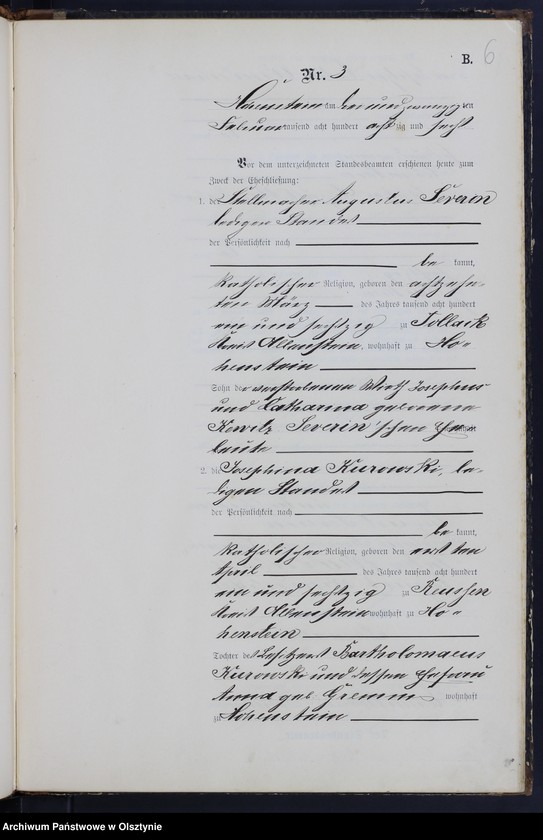 B. 6
Nr. 3
Hohenstein am drei und zwanzig ten
Februar tausend acht hundert acht zig und sechs
Vor dem unterzeichneten Standesbeamten erschienen heute zum
Zweck der Eheschließung:
1. der Stellmacher Augustus Severin
ledigen Standes
der Persönlichkeit nach
be kannt,
katholischer Religion, geboren den achtzehn-
ten März des Jahres tausend acht hundert
ein und sechzig zu Tollack
Kreis Allenstein, wohnhaft zu Ho-
henstein
Sohn der verstorbenen Wirth Josephus
und Catharina geborene
Severin'schen Ehe
leute
2. die Josephina Kurowski, le-
digen Standes
der Persönlichkeit nach
be kannt,
katholischer Religion, geboren den ersten
April des Jahres tausend acht hundert
ein und sechzig zu Reussen
Kreis Allenstein wohnhaft zu Ho-
henstein
Tochter des Besitzers Bartholomaeus
Kurowski und dessen Ehefrau
Anna geb Gremm wohnhaft
zu Hohenstein
Archiwum Państwowe w Olsztynie